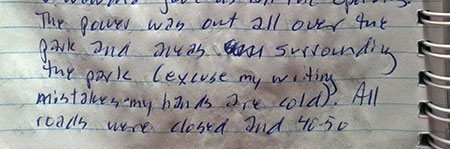 The power was out all over the
park and areas surrounding
the park (excuse my writing
mistakes-my hands are cold). All
roads were closed and 40-50